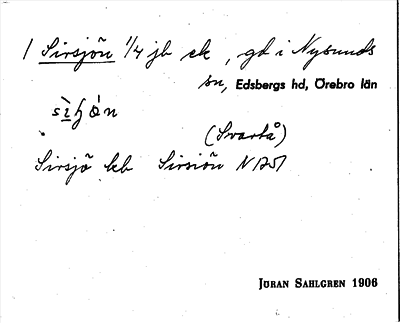 1 Sirsjön 1/4 jb ek, gd i Nysunds
sn, Edsbergs hd, Örebro län
(Svartå)
Sirsjö kb Sirsiön
JÖRAN SAHLGREN 1906